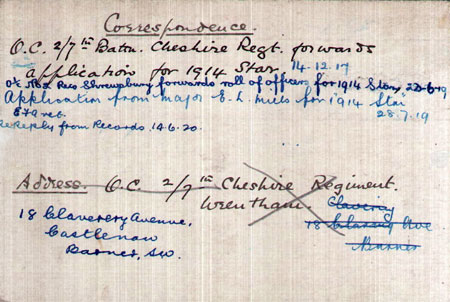 Correspondence.
O.C. 2/7th Battn. Cheshire Regt. forwards
application for 1914 Star. 14.12.17
Rec Shrewsbury forwards roll of officers for 1914 Star 20-6-19
Application from Major E. L. Mills for 1914 Star
28.7.19
Reply from Records 14.6.20.
Address. O.C. 2/7th Cheshire Regiment.
Wrentham. Clavering
18 Claverery Avenue, 18 Ave
Castlenau
Barnes, SW.
Barnes